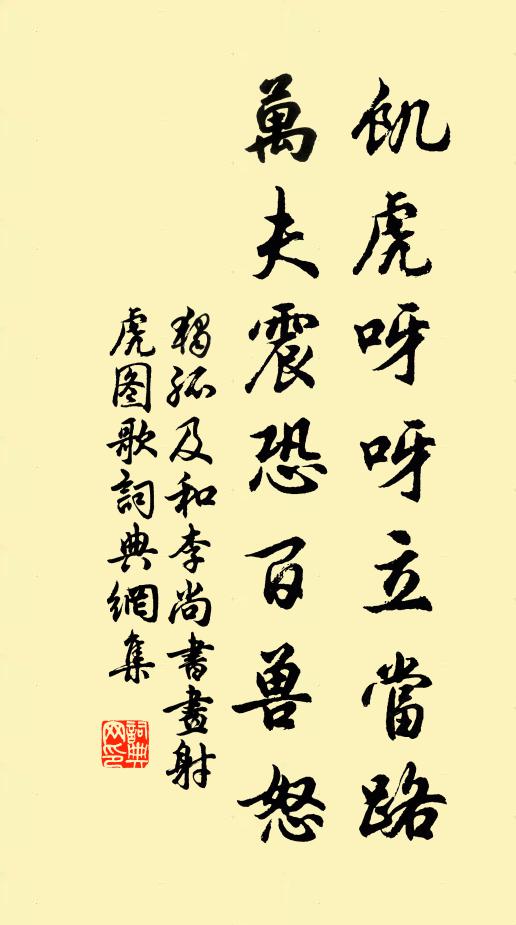 飢虎呀呀立當路
萬夫震恐百兽怒
獨孤及和李尚書畫射
虎图歌詞典網集
詞典
网印